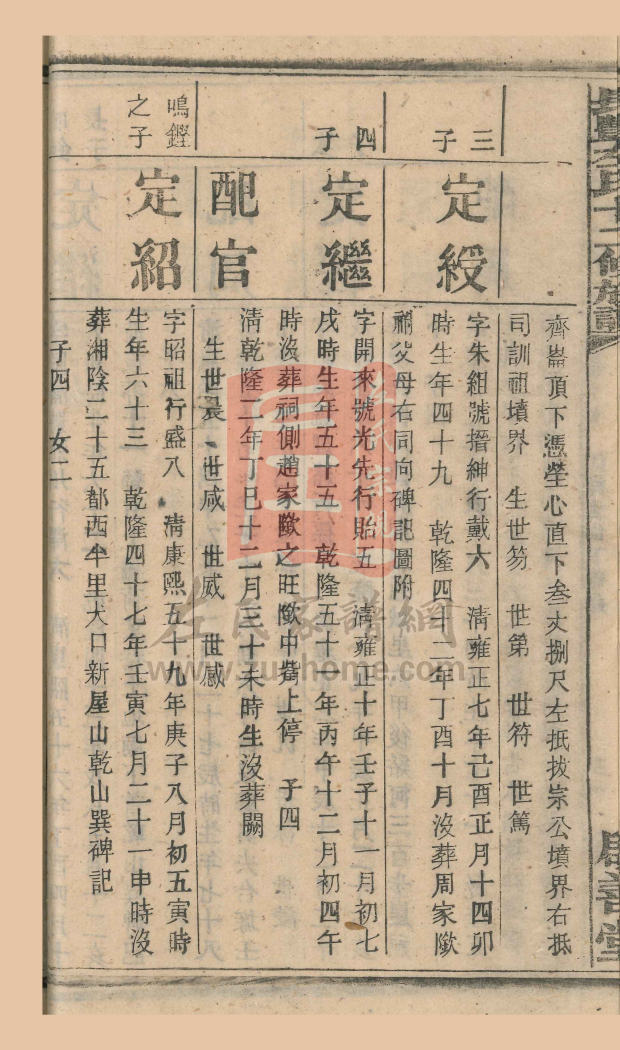 齊崙頂下憑塋心直下叁丈捌尺左抵拔宗公墳界右抵
司訓祖墳界 生世笏 世第 世符 世篤
三子
定綬
字朱組號搢紳行戴六 清雍正七年己酉正月十四卯
時生年四十九 乾隆四十二年丁酉十月沒葬周家隞
祔父母右同向碑記圖附
四子
定繼
字開來號光先行貽五 清雍正十年壬子十一月初七
戌時生年五十五 乾隆五十一年丙午十二月初四午
時沒葬祠側趙家隞之旺隞中嘴上停 子四
配官
清乾隆二年丁巳十二月三十未時生沒葬闕
生世晨 世咸 世威 世感
鳴鏗之子
定紹
字昭祖行盛八 清康熙五十九年庚子八月初五寅時
生年六十三 乾隆四十七年壬寅七月二十一申時沒
葬湘陰二十五都西半里犬口新屋山乾山巽碑記
子四 女二
啟善堂
左氏家譜網
www.zupuhome.com